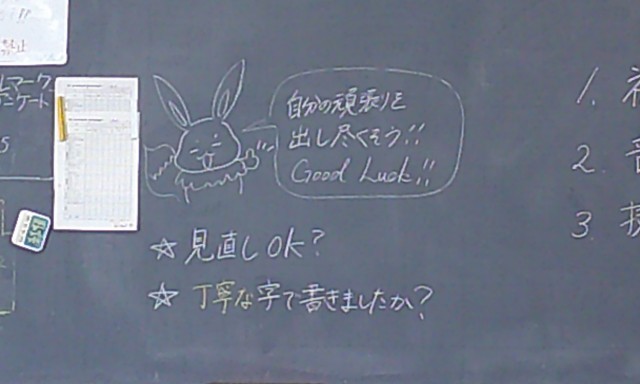 自分の頑張りを
出し尽くそう!!
Good Luck!!
☆見直しOK?
☆丁寧な字で書きましたか?
1.
2.
3.